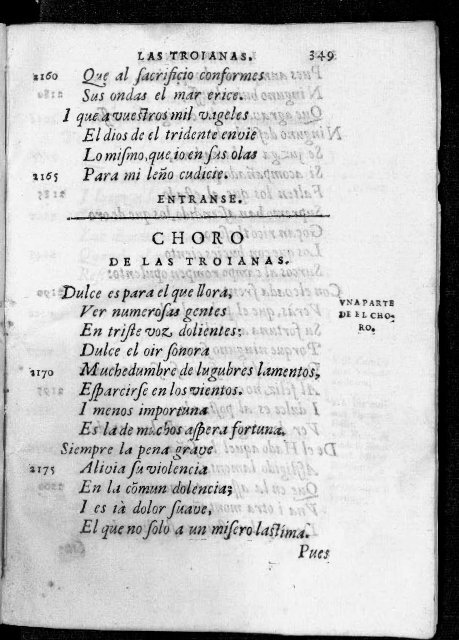 LAS TROIANAS. 349
2160 Que al ſacrificio conformes
Sus ondas el mar erice.
I que a vueſtros mil vageles
El dios de el tridente envie
Lo miſmo, que io en ſus olas
2165 Para mi leño cudicie.
ENTRANSE.
CHORO
DE LAS TROIANAS.
Dulce es para el que llora,
Ver numeroſas gentes
En triſte voz dolientes:
Dulce el oir ſonora
2170 Muchedumbre de lugubres lamentos,
Eſparcirſe en los vientos.
I menos importuna
Es la de muchos aſpera fortuna.
Siempre la pena grave
2175 Alivia ſu violencia
En la cõmun dolencia;
I es ià dolor ſuave,
El que no ſolo a un miſero laſtima.
Pues
VNA PARTE
DE EL CHO-
RO.